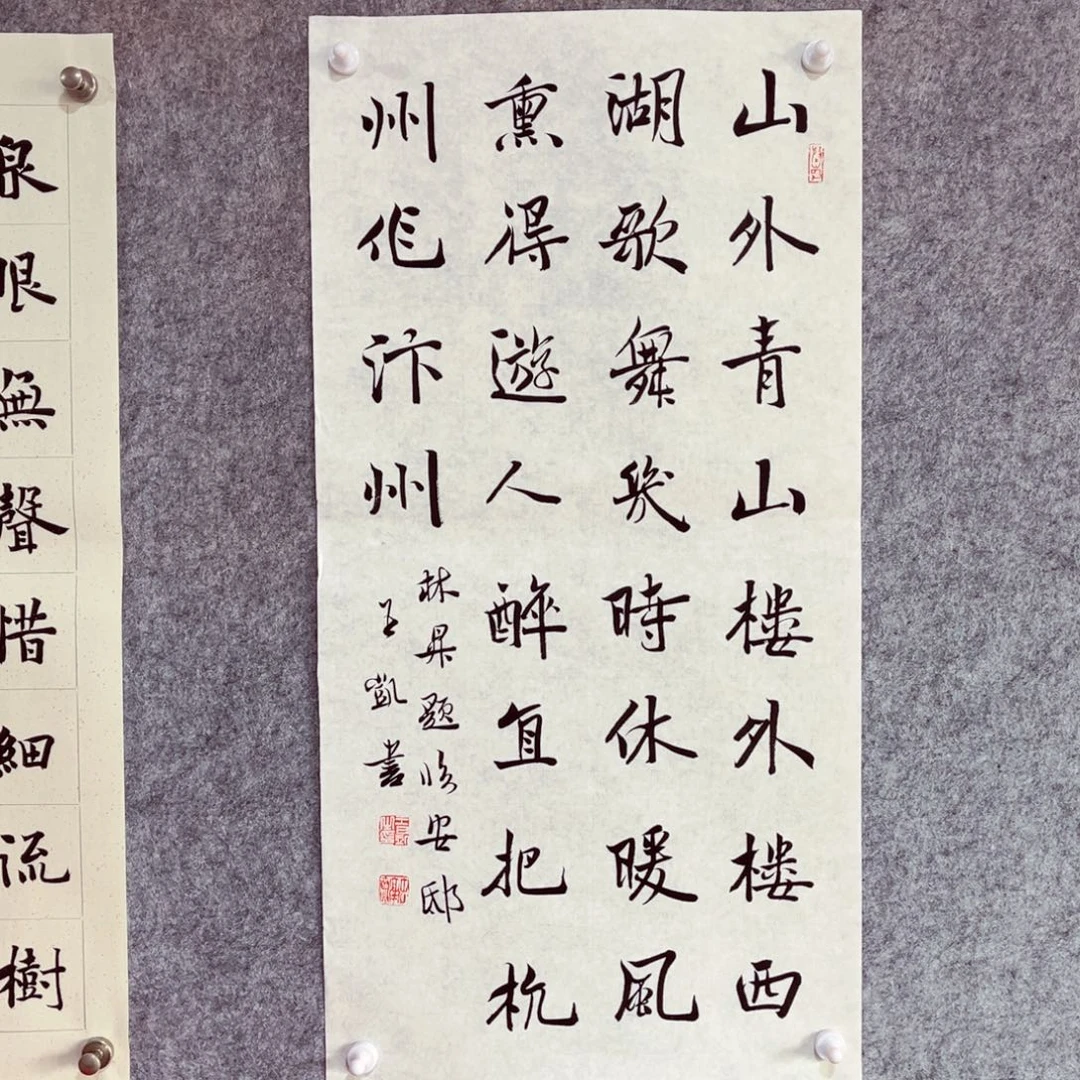 山外青山楼外楼西
湖歌舞幾時休暖風
熏得遊人醉直把杭
州作汴州
林升题临安邸
王凱書
泉眼無聲惜細流樹